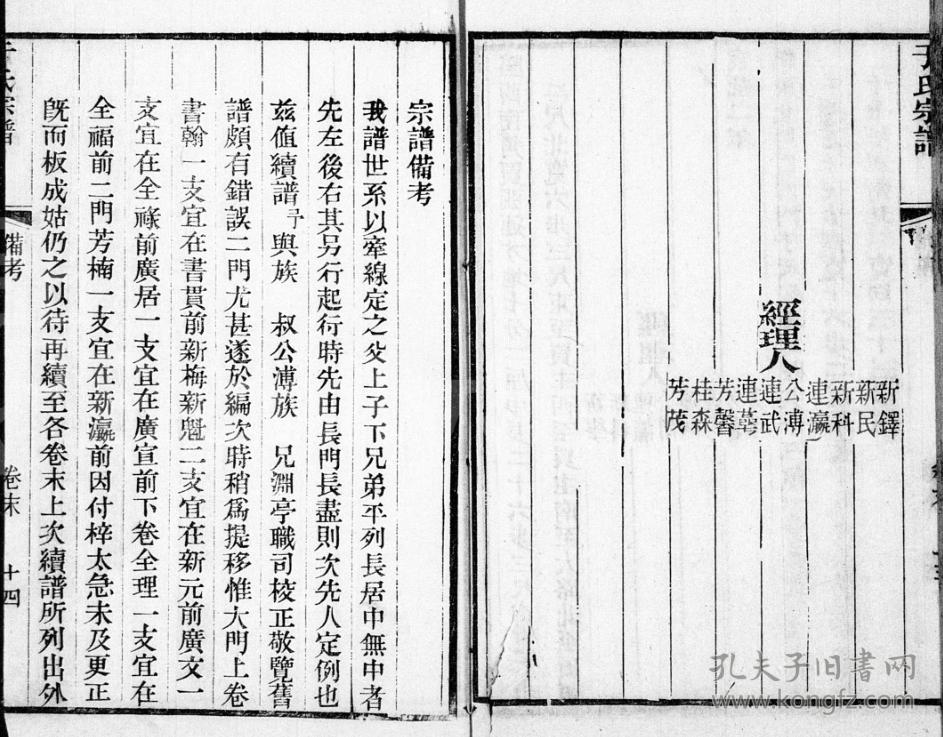 于氏宗譜
經理人
新鐸
新民
新科
連瀛
公溥
連武
連蕚
芳馨
桂森
芳茂
宗譜備考
我譜世系以牽線定之父上子下兄弟平列長居中無中者
先左後右其另行起行時先由長門長盡則次先人定例也
茲值續譜予與族 叔公溥族 兄淵亭職司校正敬覽舊
譜頗有錯誤二門尤甚遂於編次時稍爲提移惟大門上卷
書翰一支宜在書貫前新梅新魁二支宜在新元前廣文一
支宜在全祿前廣居一支宜在廣宣前下卷全理一支宜在
全福前二門芳楠一支宜在新瀛前因付梓太急未及更正
旣而板成姑仍之以待再續至各卷末上次續譜所列出外
氏宗譜
備考
卷末
十四
孔夫子旧書网
www.kongfz.com